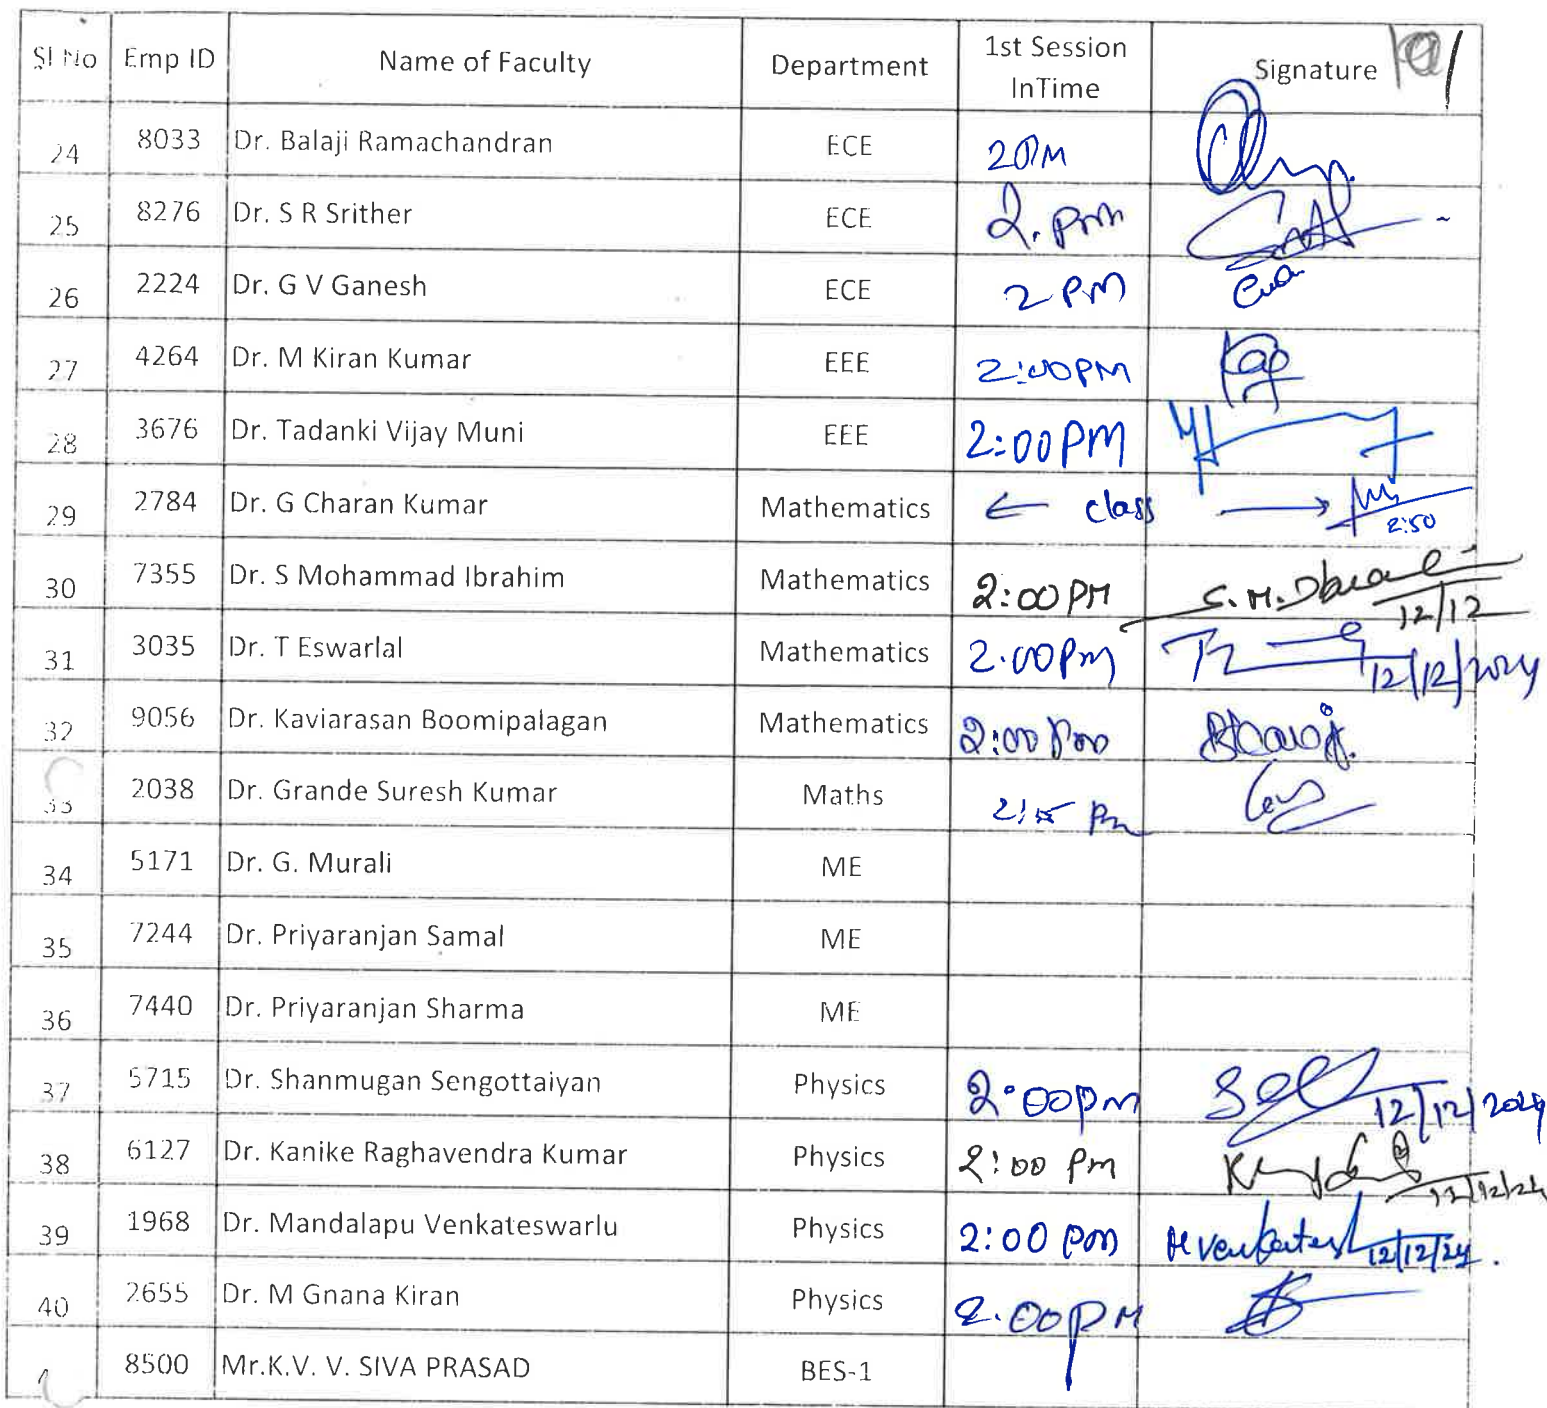 Sl No Emp ID Name of Faculty Department 1st Session InTime Signature
24 8033 Dr. Balaji Ramachandran ECE 2PM
25 8276 Dr. S R Srither ECE 2.pm
26 2224 Dr. G V Ganesh ECE 2 PM
27 4264 Dr. M Kiran Kumar EEE 2:00PM
28 3676 Dr. Tadanki Vijay Muni EEE 2:00PM
29 2784 Dr. G Charan Kumar Mathematics ← class → 2:50
30 7355 Dr. S Mohammad Ibrahim Mathematics 2:00PM 12/12
31 3035 Dr. T Eswarlal Mathematics 2.00Pm 12/12/2024
32 9056 Dr. Kaviarasan Boomipalagan Mathematics 2:00 Pm
33 2038 Dr. Grande Suresh Kumar Maths 2:15 Pm
34 5171 Dr. G. Murali ME
35 7244 Dr. Priyaranjan Samal ME
36 7440 Dr. Priyaranjan Sharma ME
37 5715 Dr. Shanmugan Sengottaiyan Physics 2:00pm 12/12/2024
38 6127 Dr. Kanike Raghavendra Kumar Physics 2:00 Pm 12/12/24
39 1968 Dr. Mandalapu Venkateswarlu Physics 2:00 pm M Venkatesh 12/12/24.
40 2655 Dr. M Gnana Kiran Physics 2.00PM
8500 Mr.K.V. V. SIVA PRASAD BES-1